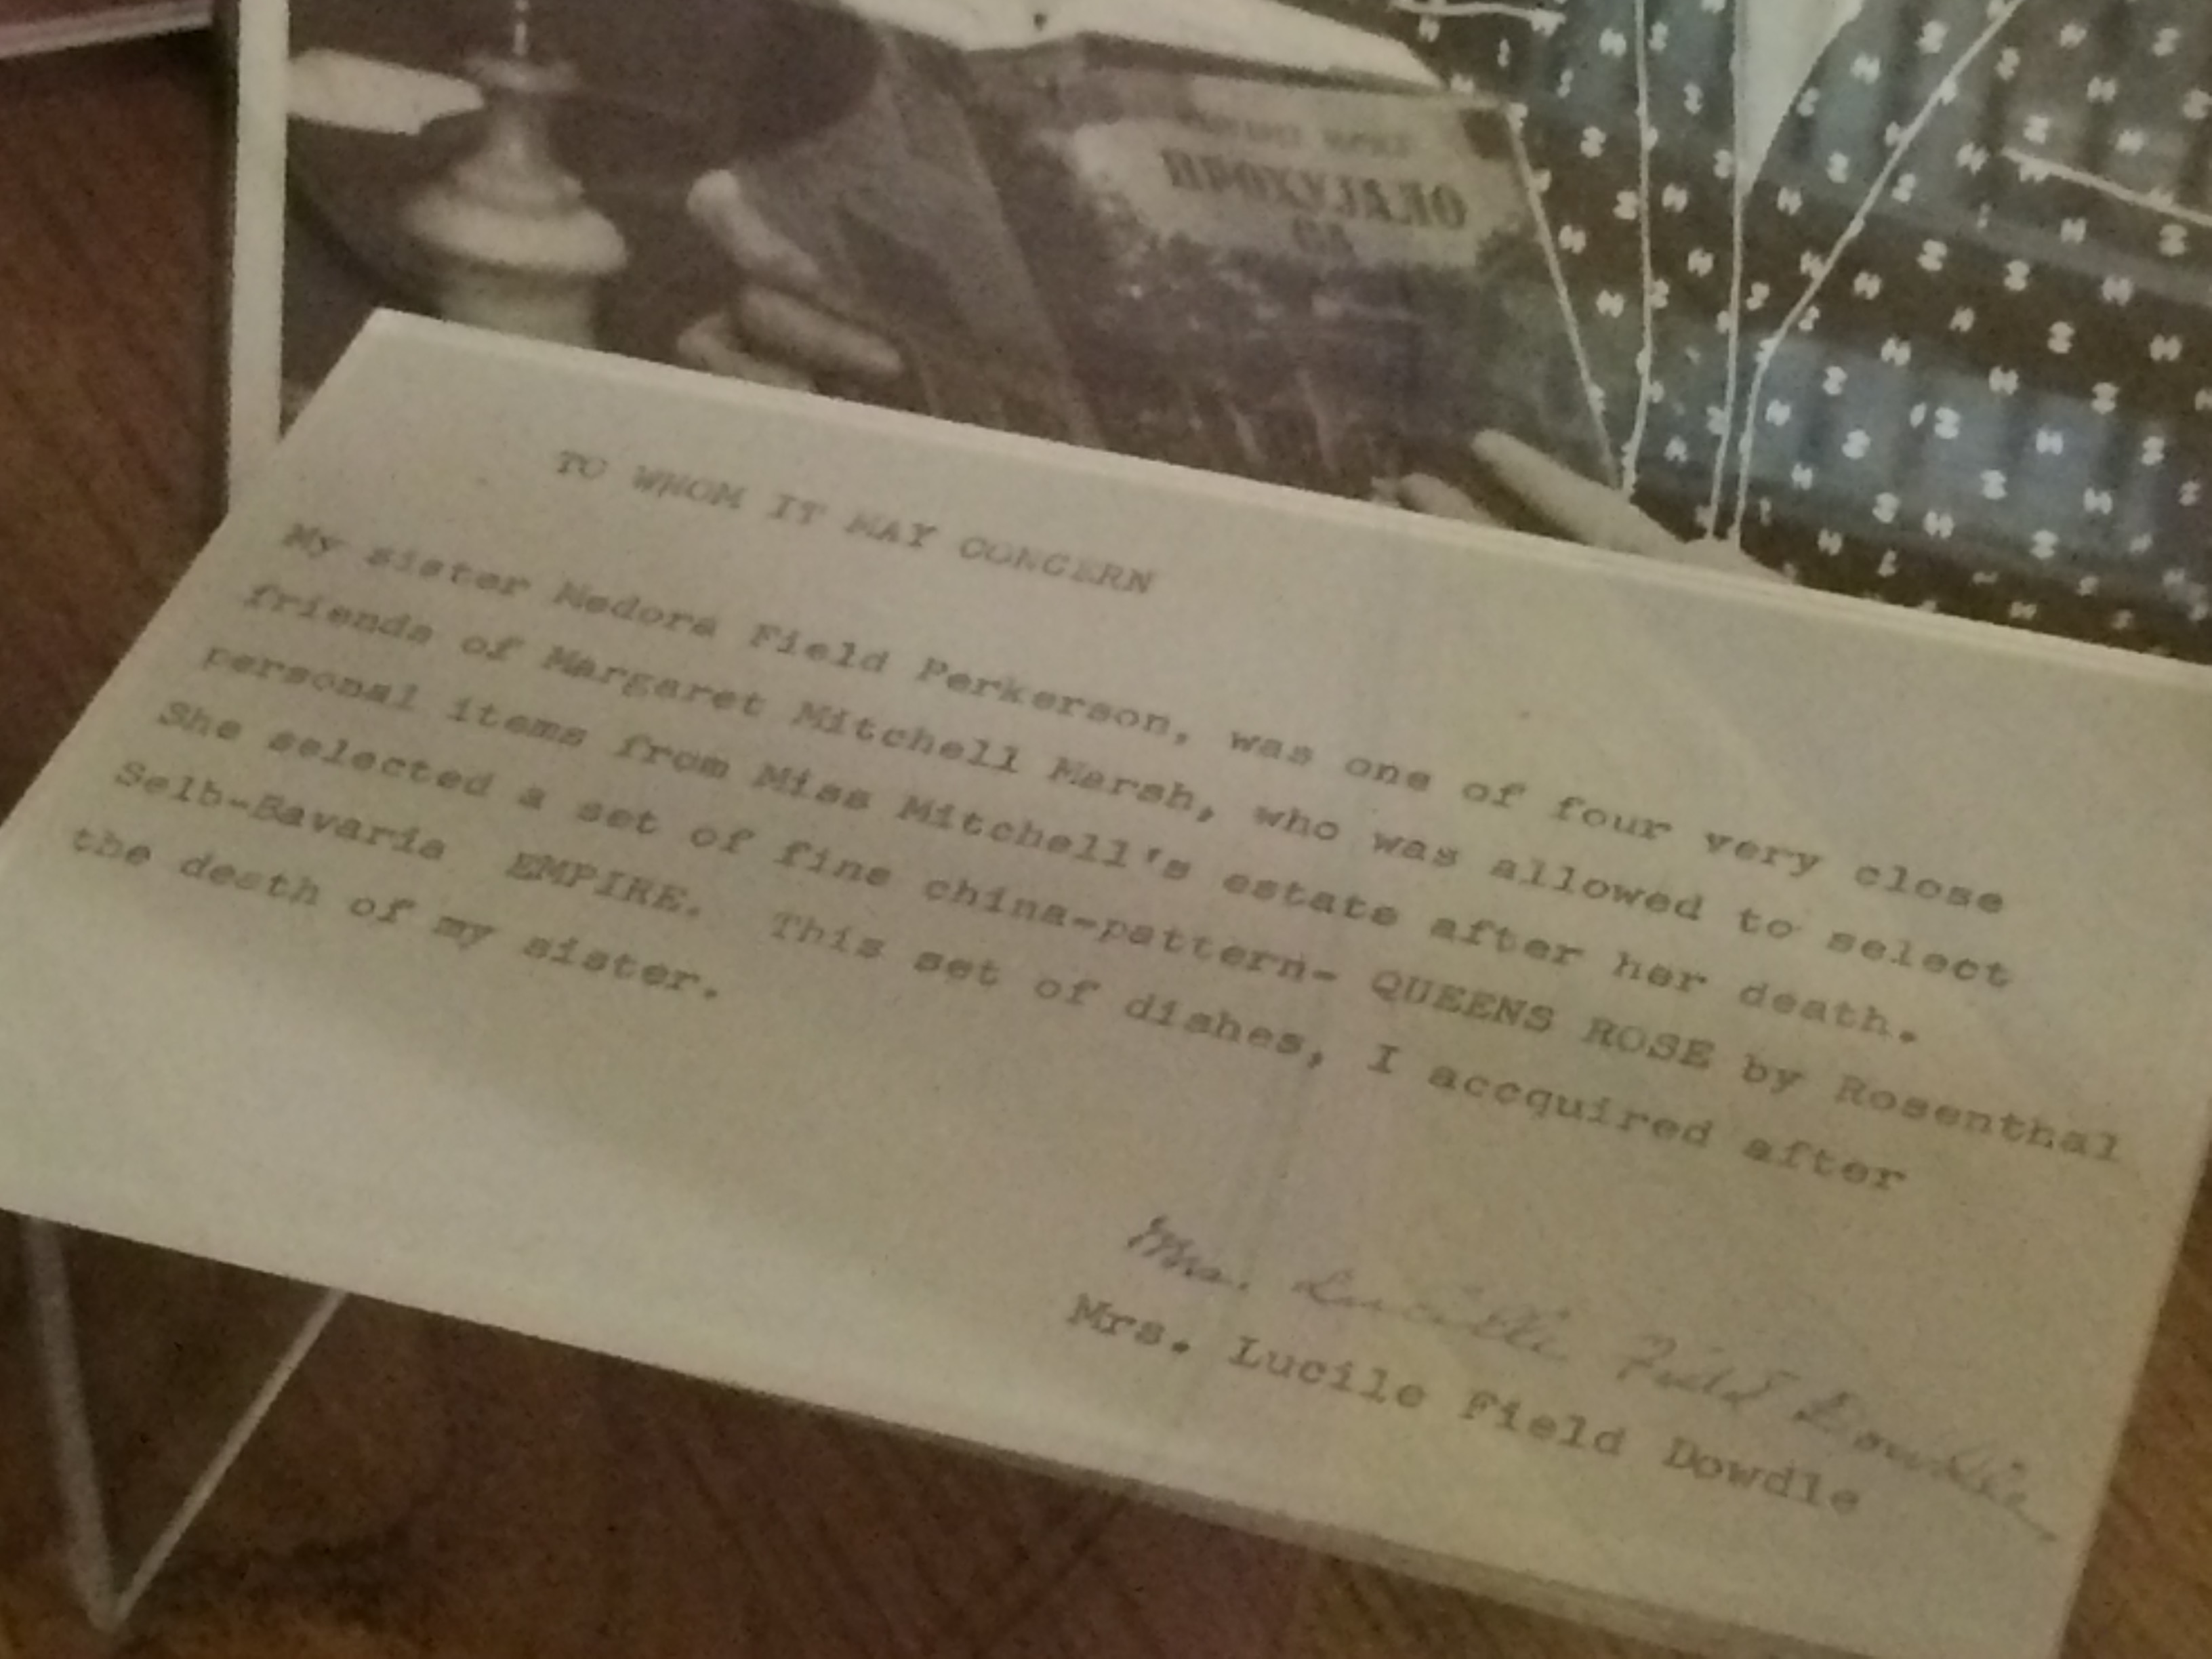 ПРОХУЈАЛО
СА
TO WHOM IT MAY CONCERN
My sister Medora Field Perkerson, was one of four very close
friends of Margaret Mitchell Marsh, who was allowed to select
personal items from Miss Mitchell's estate after her death.
She selected a set of fine china-pattern- QUEENS ROSE by Rosenthal
Selb-Bavaria EMPIRE. This set of dishes, I accquired after
the death of my sister.
Mrs. Lucille Field Dowdle
Mrs. Lucile Field Dowdle